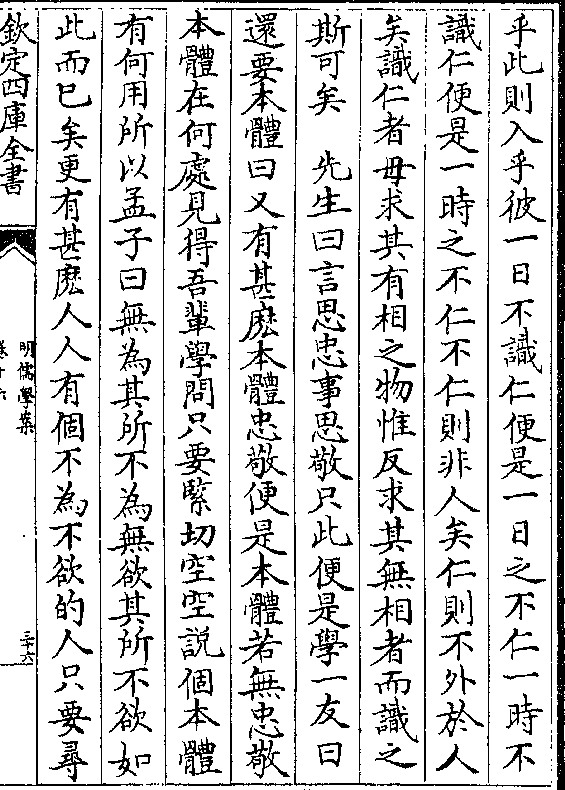 乎此則入乎彼一日不識仁便是一日之不仁一時不
識仁便是一時之不仁不仁則非人矣仁則不外於人
矣識仁者毋求其有相之物惟反求其無相者而識之
斯可矣　先生曰言思忠事思敬只此便是學一友曰
還要本體曰又有甚麽本體忠敬便是本體若無忠敬
本體在何處見得吾輩學問只要緊切空空説個本體
有何用所以孟子曰無為其所不為無欲其所不欲如
此而已矣更有甚麽人人有個不為不欲的人只要尋
欽定四庫全書
明儒學案
卷十六
三十六